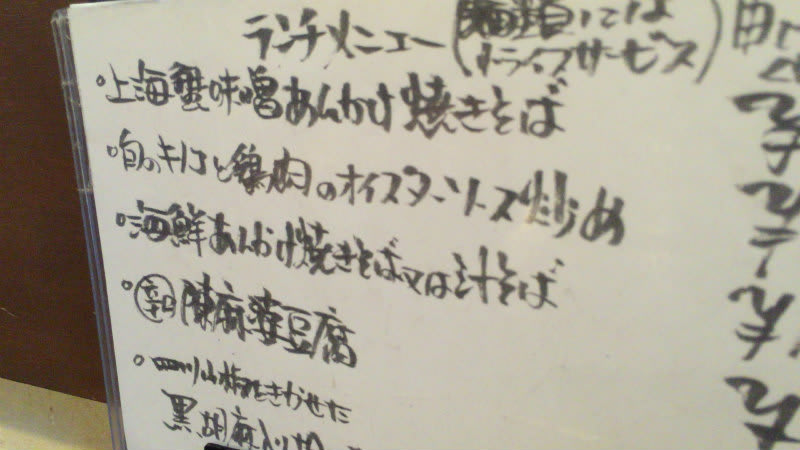 ランチメニュー(麺類には
ライスサービス)
・上海蟹味噌あんかけ焼きそば
・旬のキノコと鶏肉のオイスターソース炒め
・海鮮あんかけ焼きそば又は汁そば
・辛口陳麻婆豆腐
・四川山椒をきかせた
黒胡麻入り